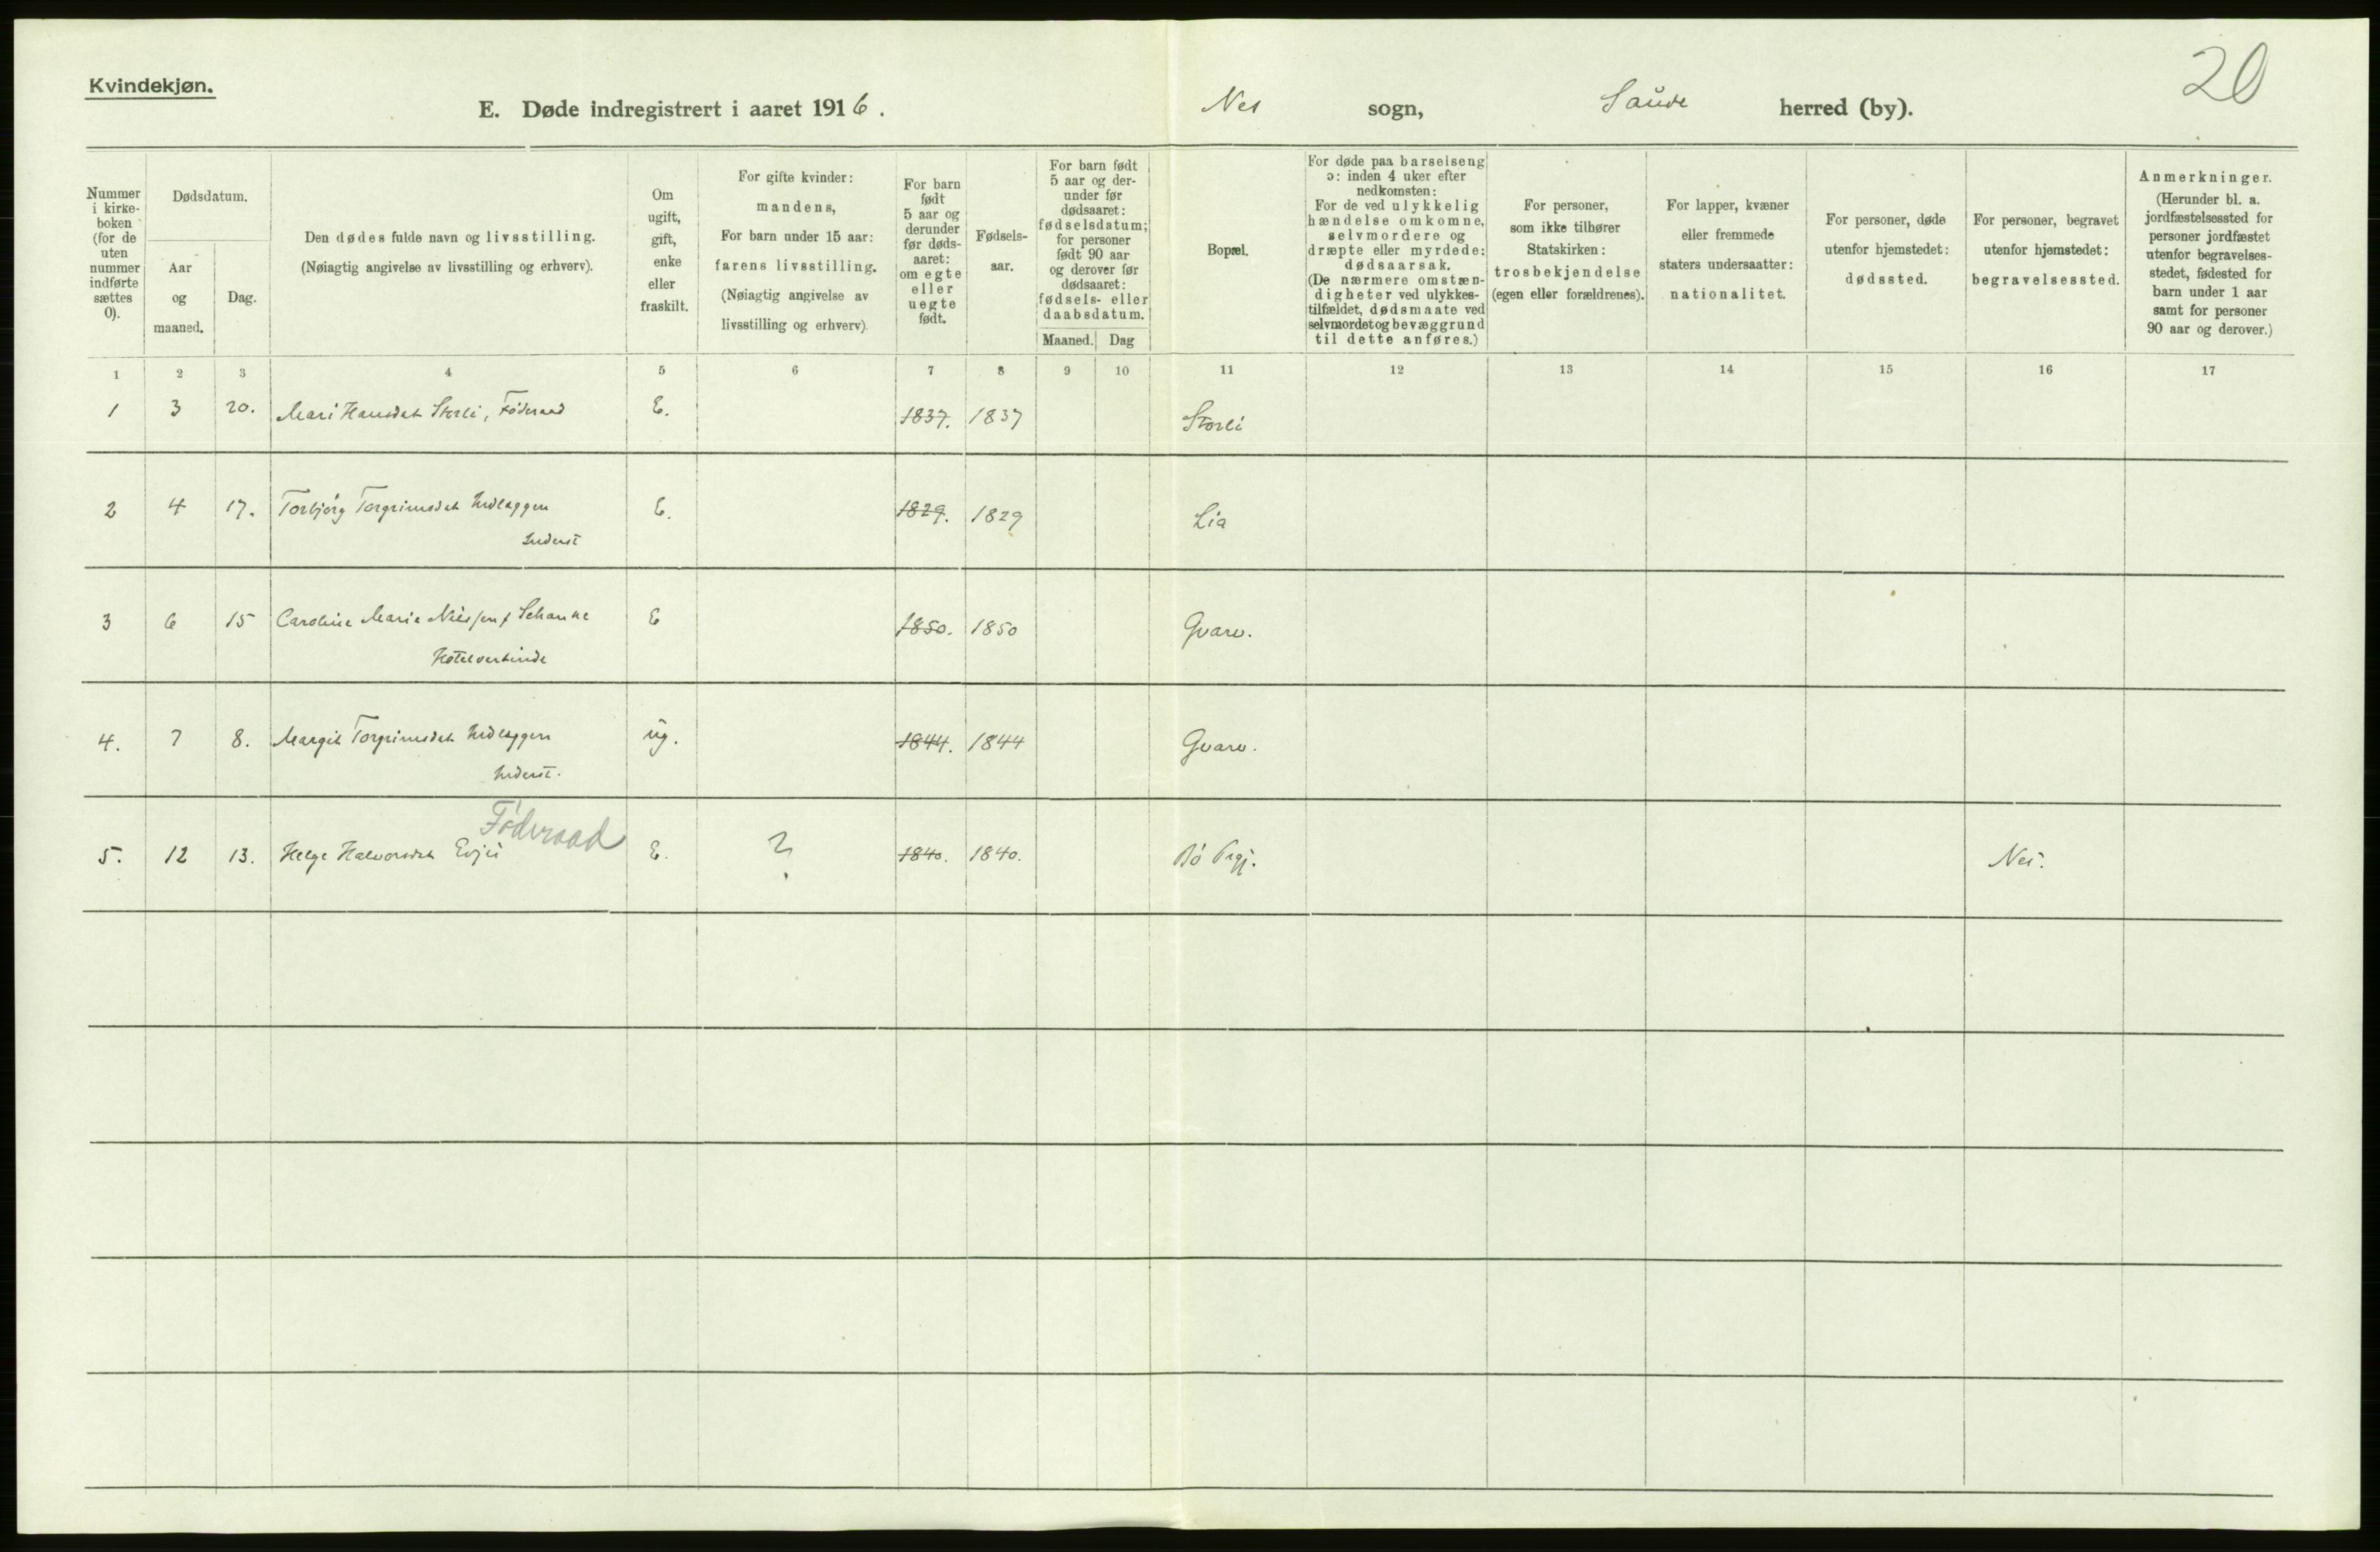 Kvindekjøn.
E. Døde indregistrert i aaret 1916.
Nes sogn, Saude herred (by).
20
Nummer i kirke- boken (for de uten nummer indførte sættes 0).
Dødsdatum.
Aar og maaned.
Dag.
Den dødes fulde navn og livsstilling.
(Nøiagtig angivelse av livsstilling og erhverv).
Om ugift, gift, enke eller fraskilt.
For gifte kvinder:
mandens,
For barn under 15 aar:
farens livsstilling.
(Nøiagtig angivelse av
livsstilling og erhverv).
For barn født 5 aar og derunder før døds- aaret: om egte eller uegte født.
Fødsels- aar.
For barn født
5 aar og der-
under før
dødsaaret:
fødselsdatum;
for personer
født 90 aar
og derover før
dødsaaret:
fødsels- eller
daabsdatum.
Maaned. Dag
Bopæl.
For døde paa barselseng
ɔ: inden 4 uker efter
nedkomsten:
For de ved ulykkelig
hændelse omkomne,
selvmordere og
dræpte eller myrdede:
dødsaarsak.
(De nærmere omstæn-
digheter ved ulykkes-
tilfældet, dødsmaate ved
selvmordet og bevæggrund
til dette anføres.)
For personer,
som ikke tilhører
Statskirken:
trosbekjendelse
(egen eller forældrenes).
For lapper, kvæner
eller fremmede
staters undersaatter:
nationalitet.
For personer, døde
utenfor hjemstedet:
dødssted.
For personer, begravet
utenfor hjemstedet:
begravelsessted.
Anmerkninger.
(Herunder bl. a.
jordfæstelsessted for
personer jordfæstet
utenfor begravelses-
stedet, fødested for
barn under 1 aar
samt for personer
90 aar og derover.)
1 2 3 4 5 6 7 8 9 10 11 12 13 14 15 16 17
1 3 20. Mari Hansdat Storli, Föderaad E. 1837. 1837 Storli
2 4 17. Torbjörg Torgrimsdat Indlæggen E. 1829. 1829 Lia
Inderst
3 6 15 Caroline Marie Niels Schanke E 1850. 1850 Gvarv.
Hotelvertinde
4. 7 8. Margit Torgrimsdat Indlæggen ug. 1844. 1844 Gvarv.
Inderst.
Föderaad
5. 12 13. Helge Halvorsdat Evju E. ? 1840. 1840. Bö Prgj. Nes.